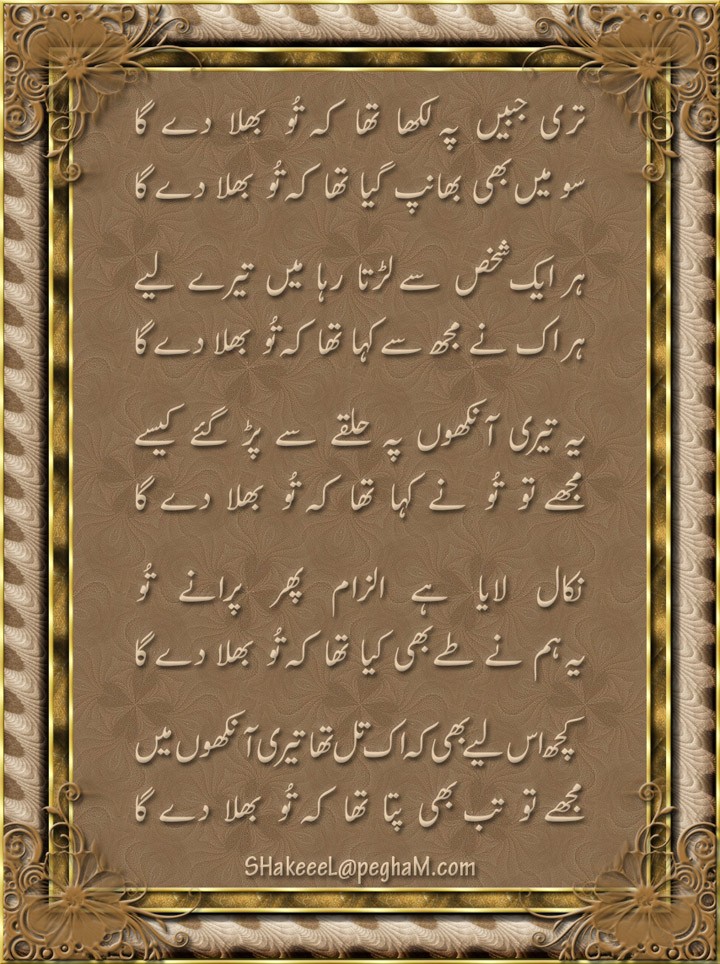 تری جبیں پہ لکھا تھا کہ تُو بھلا دے گا
سو میں بھی بھانپ گیا تھا کہ تُو بھلا دے گا
ہر ایک شخص سے لڑتا رہا میں تیرے لیے
ہر اک نے مجھ سے کہا تھا کہ تُو بھلا دے گا
یہ تیری آنکھوں پہ حلقے سے پڑ گئے کیسے
مجھے تو تُو نے کہا تھا کہ تُو بھلا دے گا
نکال لایا ہے الزام پھر پرانے تُو
یہ ہم نے طے بھی کیا تھا کہ تُو بھلا دے گا
کچھ اس لیے بھی کہ اک تل تھا تیری آنکھوں میں
مجھے تو تب بھی پتا تھا کہ تُو بھلا دے گا
SHakeeeL@peghaM.com